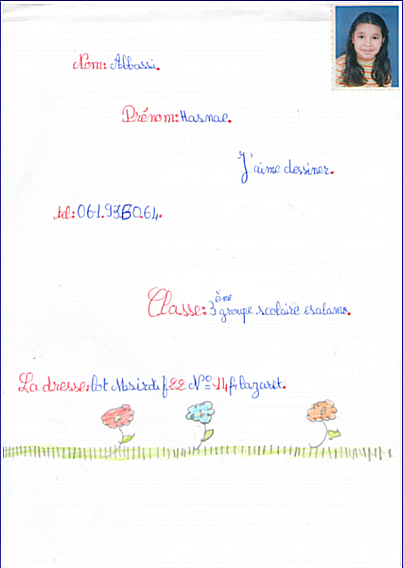 Nom: Abbassi.
Prénom: Hasnae.
J'aime dessiner.
tel: 061.936064.
Classe: 3ème groupe scolaire esalama.
La dresse: lot Msirdi f 22 N° 14 f lazaret.